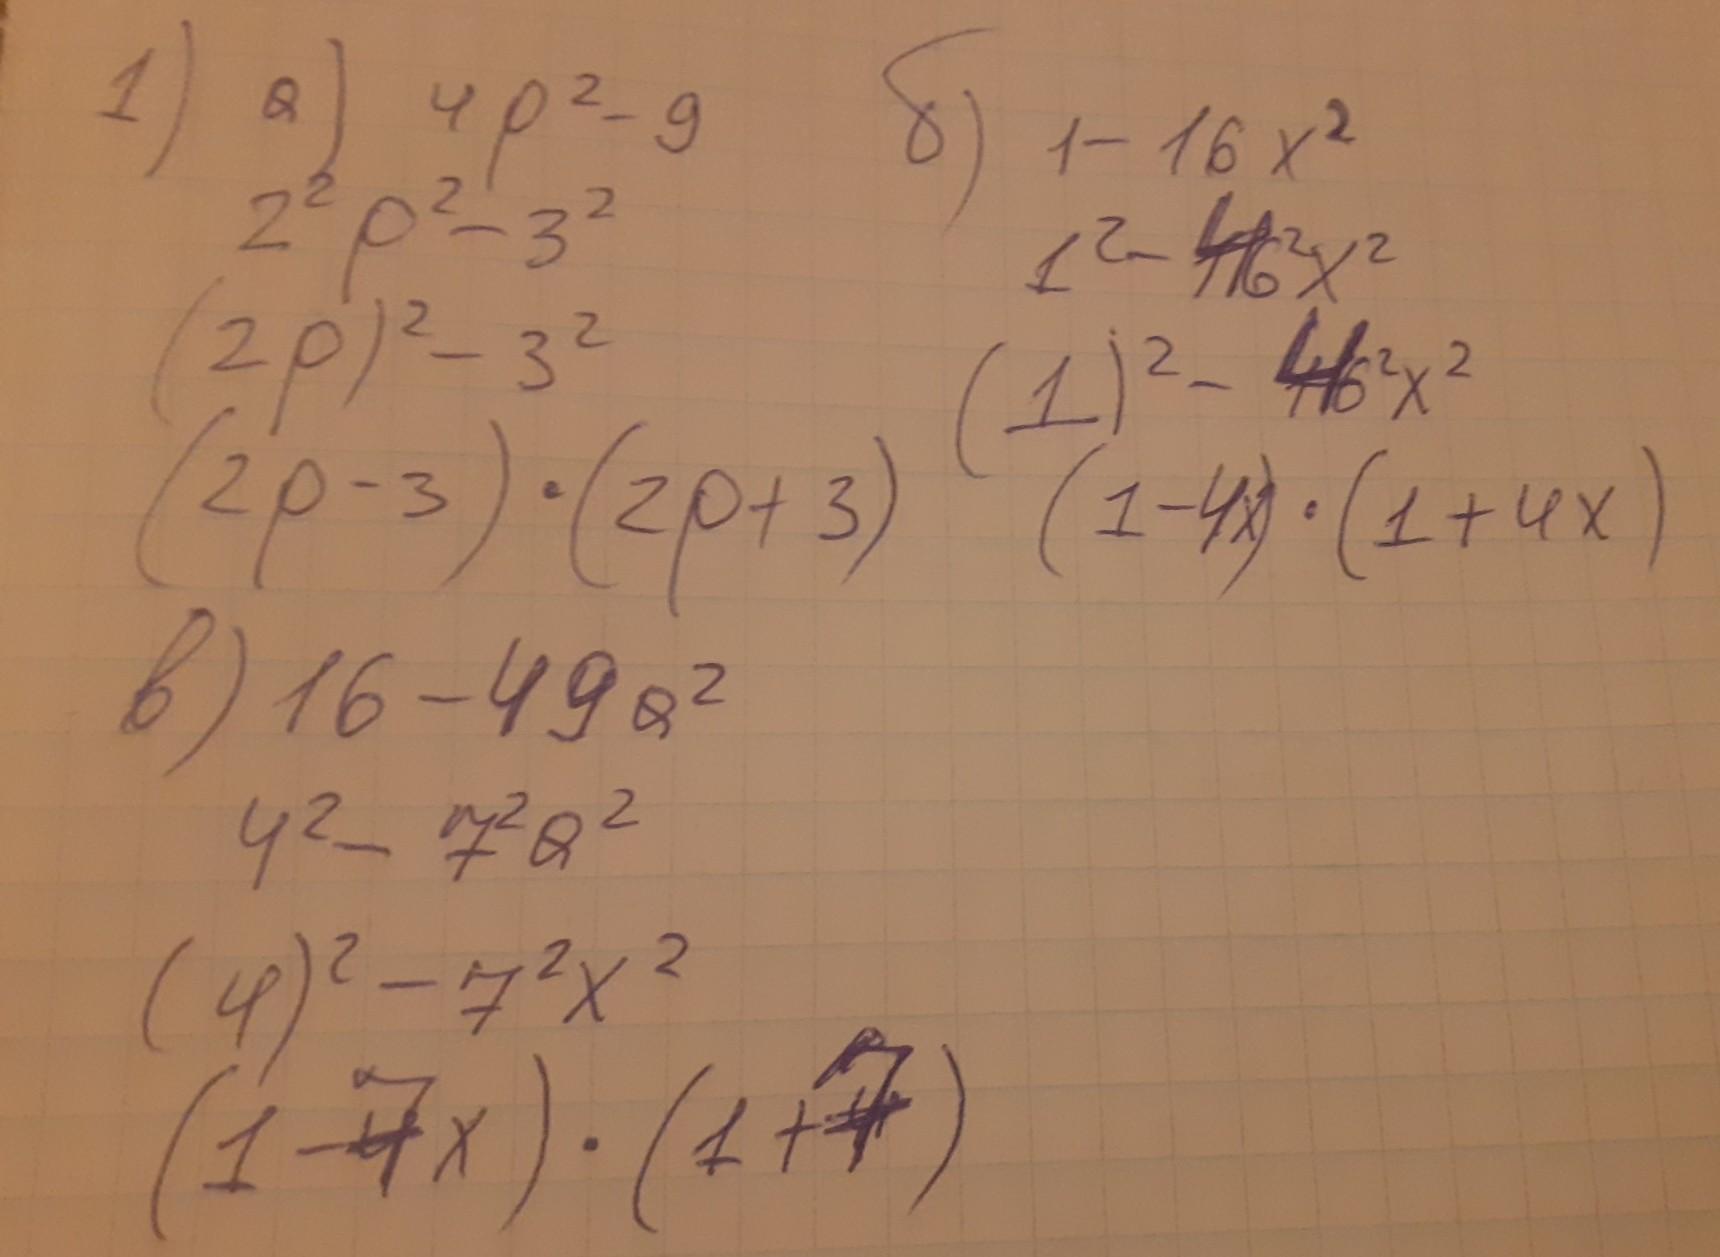 1) а) 4p² - 9
2²p² - 3²
(2p)² - 3²
(2p - 3) · (2p + 3)
б) 1 - 16x²
1² - 4²x²
(1)² - 4²x²
(1 - 4x) · (1 + 4x)
в) 16 - 49a²
4² - 7²a²
(4)² - 7²x²
(1 - 7x) · (1 + 7)